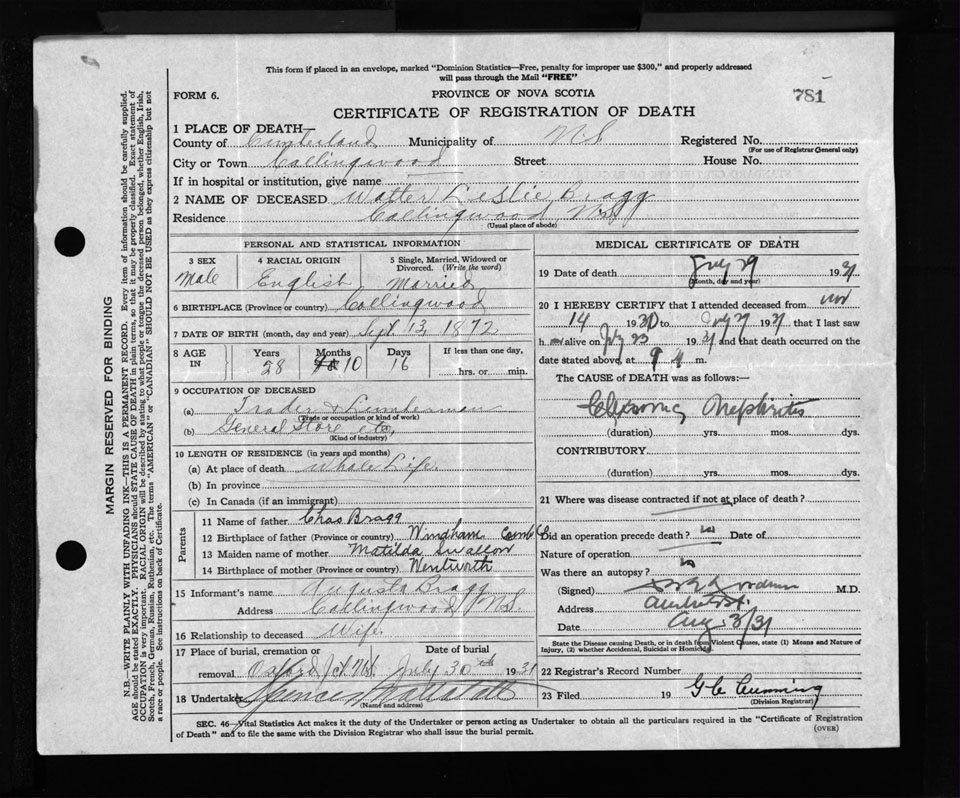 This form if placed in an envelope, marked "Dominion Statistics—Free, penalty for improper use $300," and properly addressed
will pass through the Mail "FREE"
FORM 6.
PROVINCE OF NOVA SCOTIA
781
CERTIFICATE OF REGISTRATION OF DEATH
1 PLACE OF DEATH—
County of Cumberland Municipality of N.S Registered No.
(For use of Registrar General only)
City or Town Collingwood Street House No.
If in hospital or institution, give name
2 NAME OF DECEASED Walter Leslie Bragg
Residence Collingwood, N.S.
(Usual place of abode)
PERSONAL AND STATISTICAL INFORMATION
3 SEX 4 RACIAL ORIGIN 5 Single, Married, Widowed or
Divorced. (Write the word)
Male English Married
6 BIRTHPLACE (Province or country) Collingwood
7 DATE OF BIRTH (month, day and year) Sept 13, 1872
8 AGE IN Years Months Days If less than one day,
58 10 16 hrs. or min.
9 OCCUPATION OF DECEASED
(a) Trader & Lumberman
(Trade or occupation or kind of work)
(b) General Store etc,
(Kind of industry)
10 LENGTH OF RESIDENCE (in years and months)
(a) At place of death Whole Life
(b) In province
(c) In Canada (if an immigrant)
Parents
11 Name of father Chas Bragg
12 Birthplace of father (Province or country) Windham Cumb Co
13 Maiden name of mother Matilda Swallow
14 Birthplace of mother (Province or country) Wentworth
15 Informant's name Augusta Bragg
Address Collingwood N.S.
16 Relationship to deceased Wife
17 Place of burial, cremation or Date of burial
removal Oxford Jct N.S. July 30th 1931
18 Undertaker
(Name and address)
MEDICAL CERTIFICATE OF DEATH
19 Date of death July 29 1931
(Month, day and year)
20 I HEREBY CERTIFY that I attended deceased from Nov
14 1930 to July 29 1931 that I last saw
h alive on July 23 1931 and that death occurred on the
date stated above, at 9 A m.
The CAUSE of DEATH was as follows:—
Chronic Nephritis
(duration) yrs. mos. dys.
CONTRIBUTORY
(duration) yrs. mos. dys.
21 Where was disease contracted if not at place of death?
Did an operation precede death? no Date of
Nature of operation
Was there an autopsy? no
(Signed) M.D.
Address Amherst
Date Aug 3/31
State the Disease causing Death, or in death from Violent Causes, state (1) Means and Nature of
Injury, (2) whether Accidental, Suicidal or Homicidal.
22 Registrar's Record Number
23 Filed 19 G C Cumming
(Division Registrar)
SEC. 46—Vital Statistics Act makes it the duty of the Undertaker or person acting as Undertaker to obtain all the particulars required in the "Certificate of Registration
of Death" and to file the same with the Division Registrar who shall issue the burial permit.
(OVER)
MARGIN RESERVED FOR BINDING
N.B.—WRITE PLAINLY WITH UNFADING INK—THIS IS A PERMANENT RECORD. Every item of information should be carefully supplied.
AGE should be stated EXACTLY. PHYSICIANS should STATE CAUSE OF DEATH in plain terms, so that it may be properly classified. Exact statement of
OCCUPATION is very important. RACIAL ORIGIN will be described by stating to what people or tongue the deceased person belonged, whether English, Irish,
Scotch, French, German, Russian, Ruthenian, etc. The terms "AMERICAN" or "CANADIAN" SHOULD NOT BE USED as they express citizenship but not
a race or people. See instructions on back of Certificate.